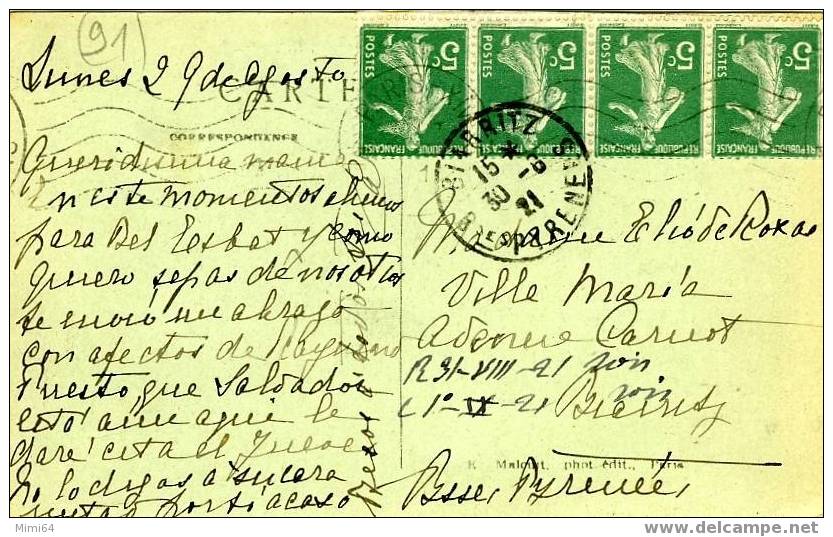 91
Lunes 29 de Agosto
CARTE
CORRESPONDANCE
Queridisima mama
En este momento
para Bel Esbat y como
quiero sepas de nosotros
te envio un abrazo
con afectos de
Puesto que Salvador
está aun aqui le
daré cita el Jueves
por si acaso
Besos a
5c POSTES REPUBLIQUE FRANÇAISE
5c POSTES REPUBLIQUE FRANÇAISE
5c POSTES REPUBLIQUE FRANÇAISE
5c POSTES REPUBLIQUE FRANÇAISE
BIARRITZ
15 * 30 -8 21
Elio de Roxas
Ville Maria
Avenue Carnot
R 31-VIII-21
C 1º-IX-21
Biarritz
Basses Pyrenées
E. Malcuit, phot. édit., Paris
Mimi64
www.delcampe.net